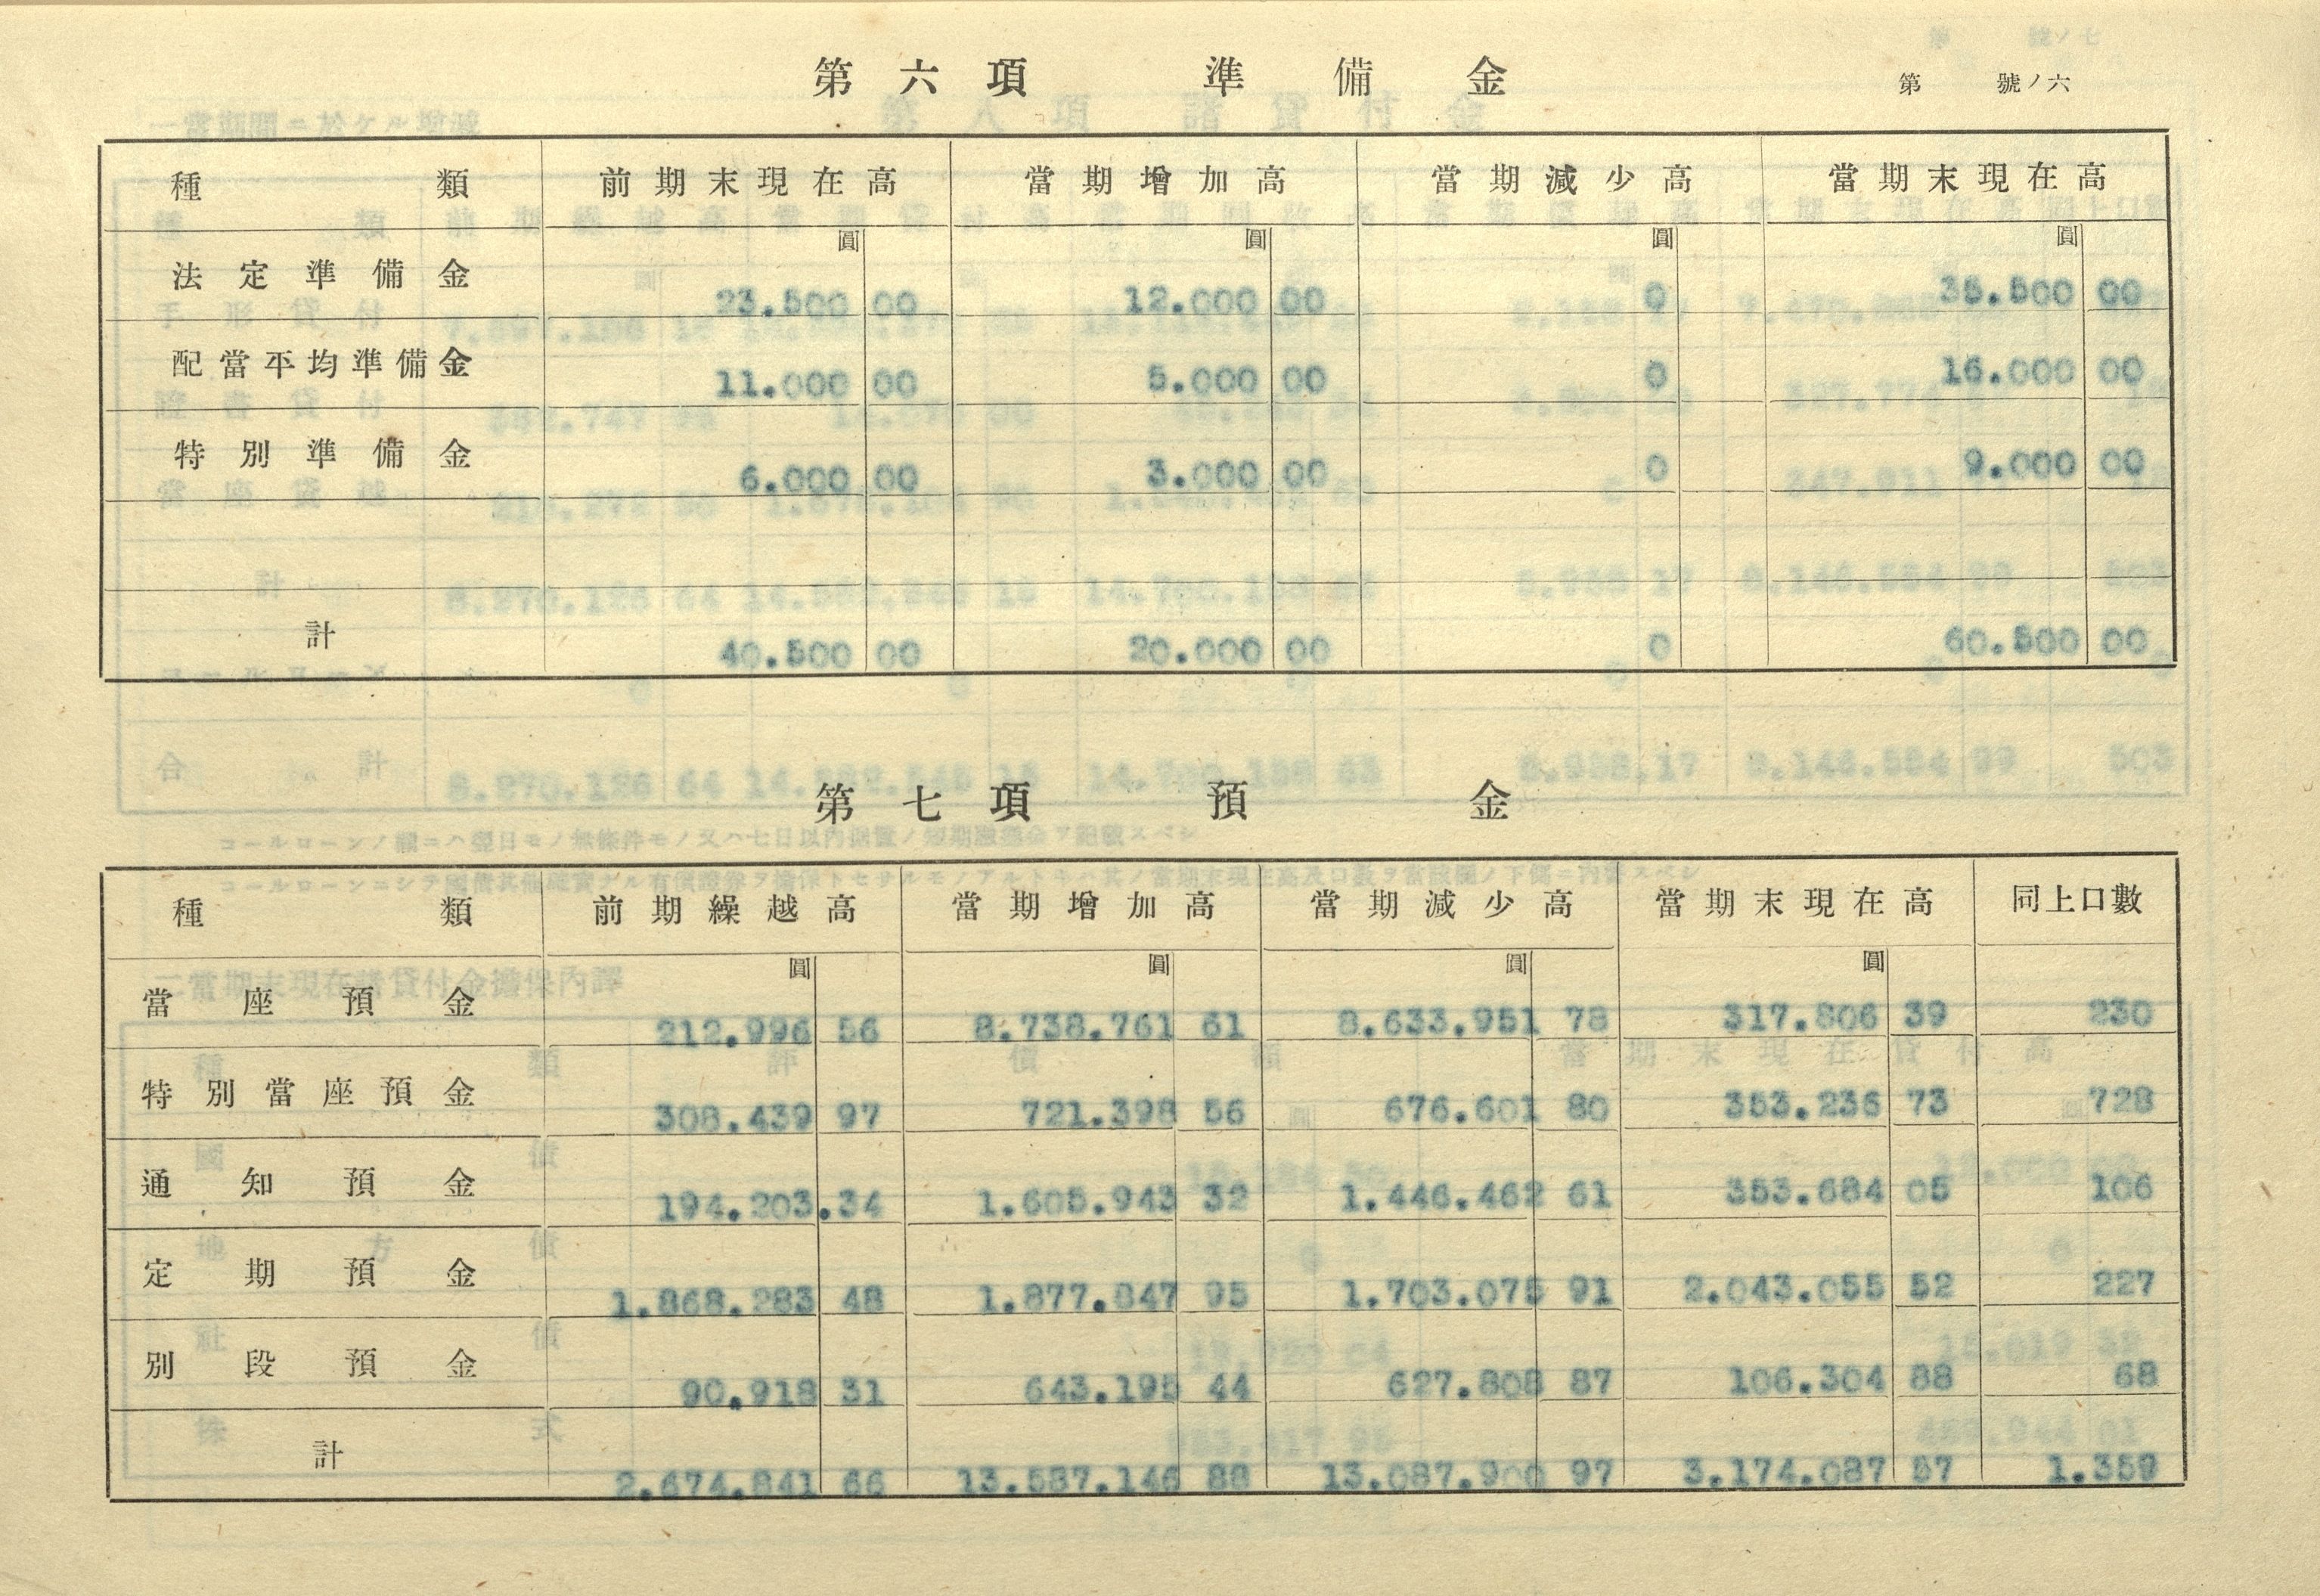 第六項 準備金 第 號ノ六
種類 前期末現在高 當期增加高 當期減少高 當期末現在高
圓 圓 圓 圓
法定準備金 23.500 00 12.000 00 0 35.500 00
配當平均準備金 11.000 00 5.000 00 0 16.000 00
特別準備金 6.000 00 3.000 00 0 9.000 00
計 40.500 00 20.000 00 0 60.500 00
第七項 預金
種類 前期繰越高 當期增加高 當期減少高 當期末現在高 同上口數
圓 圓 圓 圓
當座預金 212.996 56 8.738.761 61 8.633.951 78 317.806 39 230
特別當座預金 308.439 97 721.398 56 676.601 80 353.236 73 728
通知預金 194.203.34 1.605.943 32 1.446.462 61 353.684 05 106
定期預金 1.868.283 48 1.877.847 95 1.703.075 91 2.043.055 52 227
別段預金 90.918 31 643.195 44 627.808 87 106.304 88 68
計 2.674.841 66 13.587.146 88 13.087.900 97 3.174.087 57 1.359